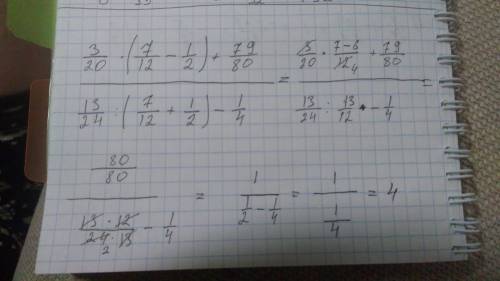 3/20 · (7/12 − 1/2) + 79/80 / 13/24 : (7/12 + 1/2) − 1/4 = 3/20 · 7−6/12 4 + 79/80 / 13/24 : 13/12 − 1/4 =
80/80 / 13 · 12/24 · 13 2 − 1/4 = 1 / 1/2 − 1/4 = 1 / 1/4 = 4